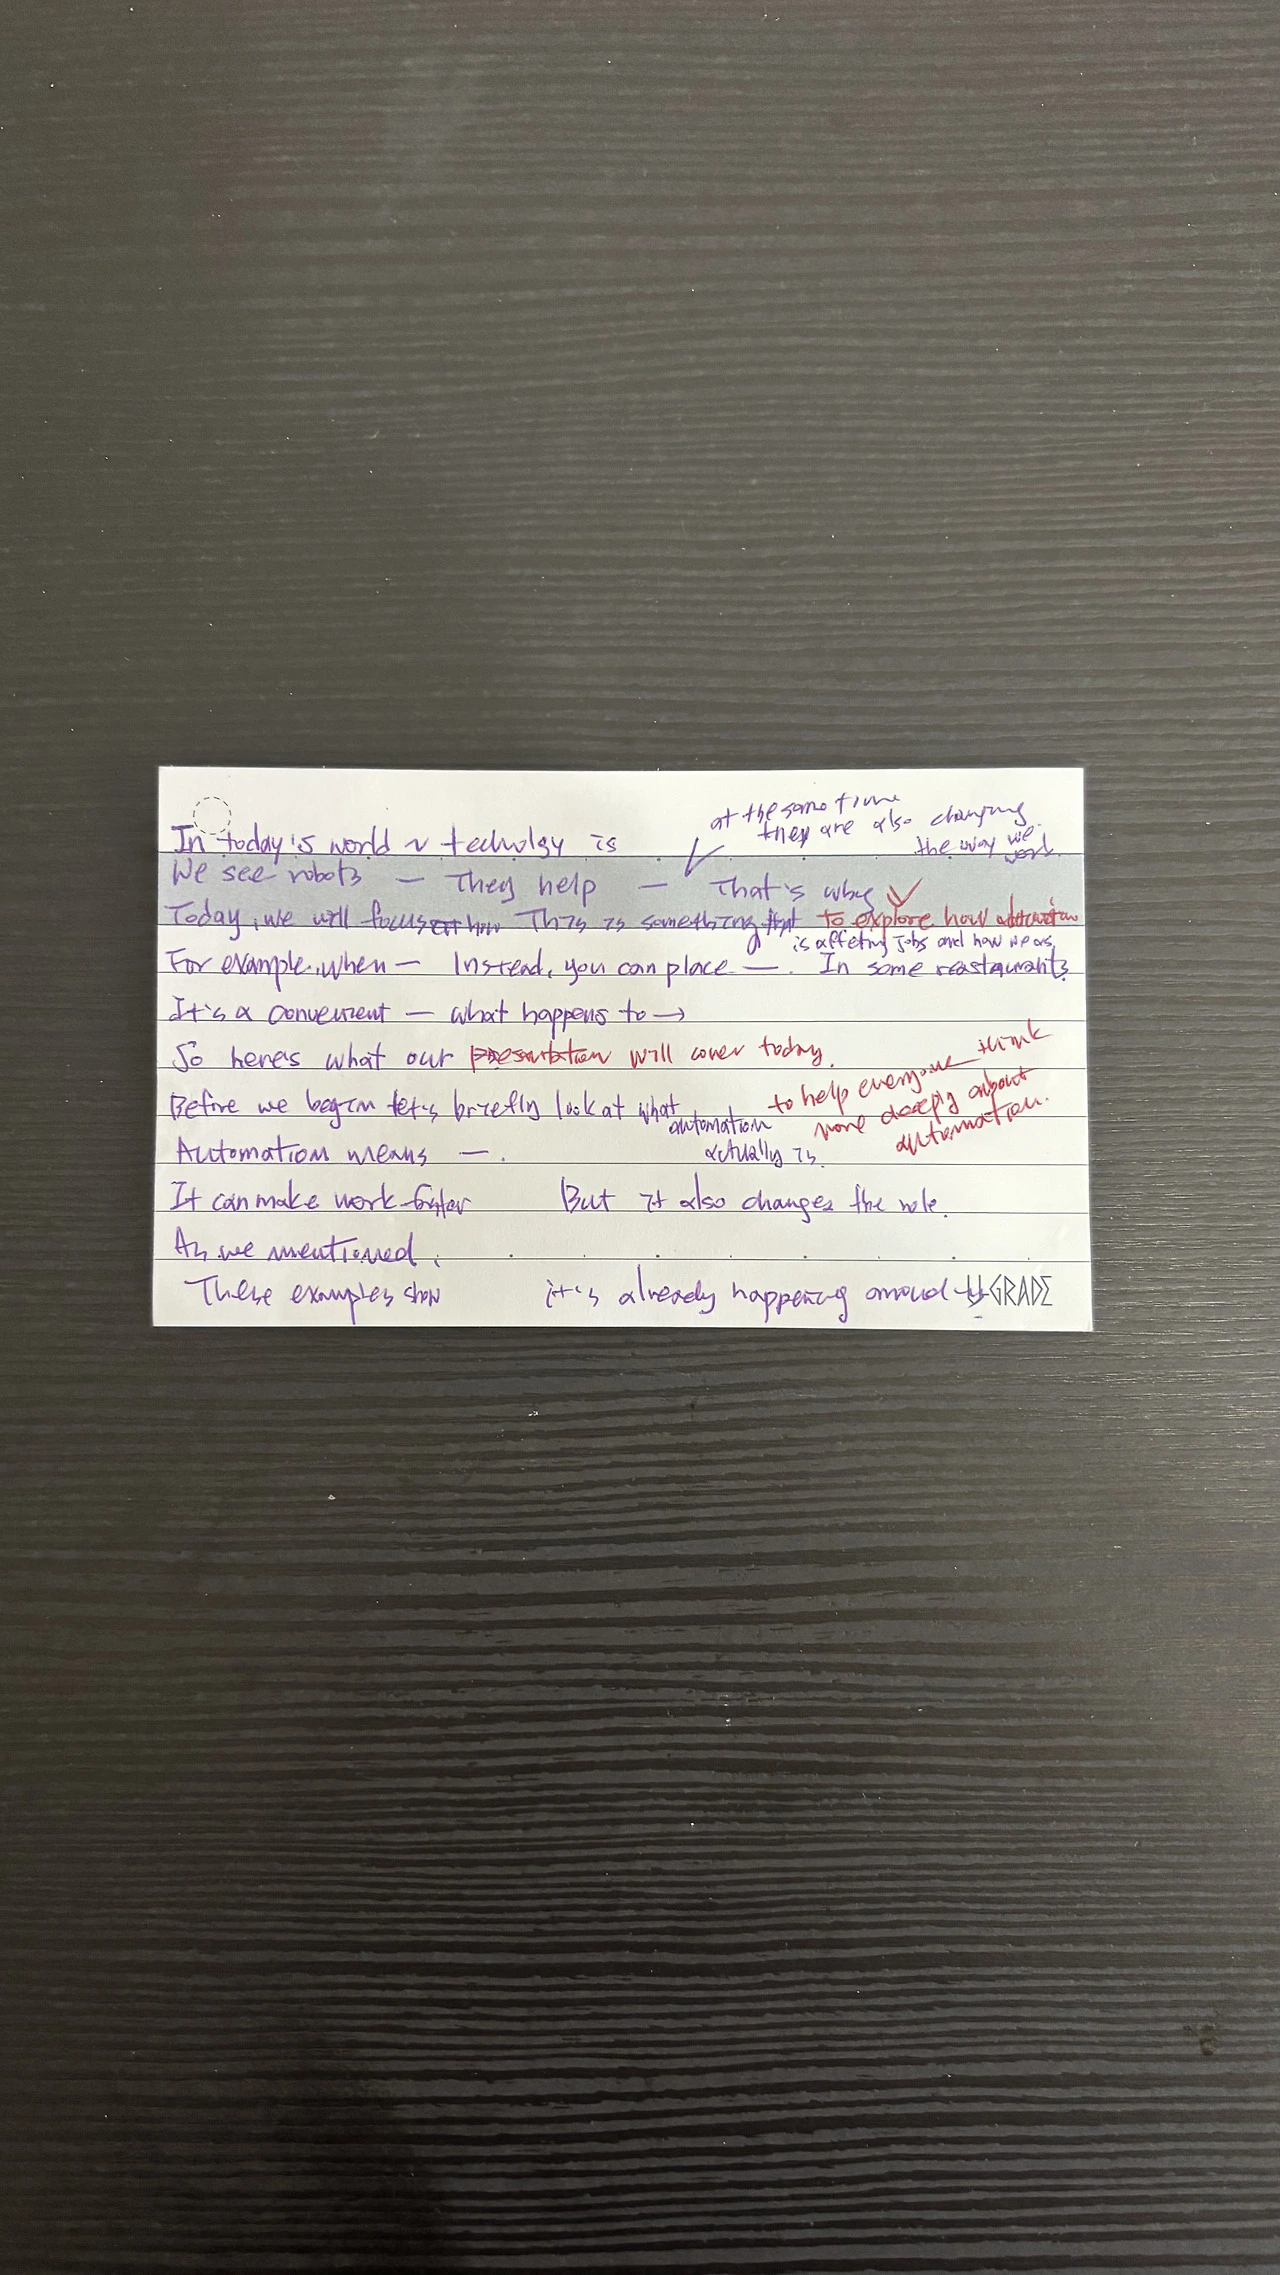 at the same time
they are also changing
the way we
work
In today's world ~ technolgy is
We see robots — They help — That's why
Today, we will focus how This is something that to explore how
is affeting jobs and how we as
For example, when — Instead, you can place —. In some reastaurants
It's a convenient — what happens to →
So here's what our presentation will cover today.
to help everyone think
more deeply about
automation.
Before we begin let's briefly look at what
automation
actually is.
Automation means —.
It can make work faster But it also changes the role.
As we mentioned,
These examples show it's already happening around us
GRADE